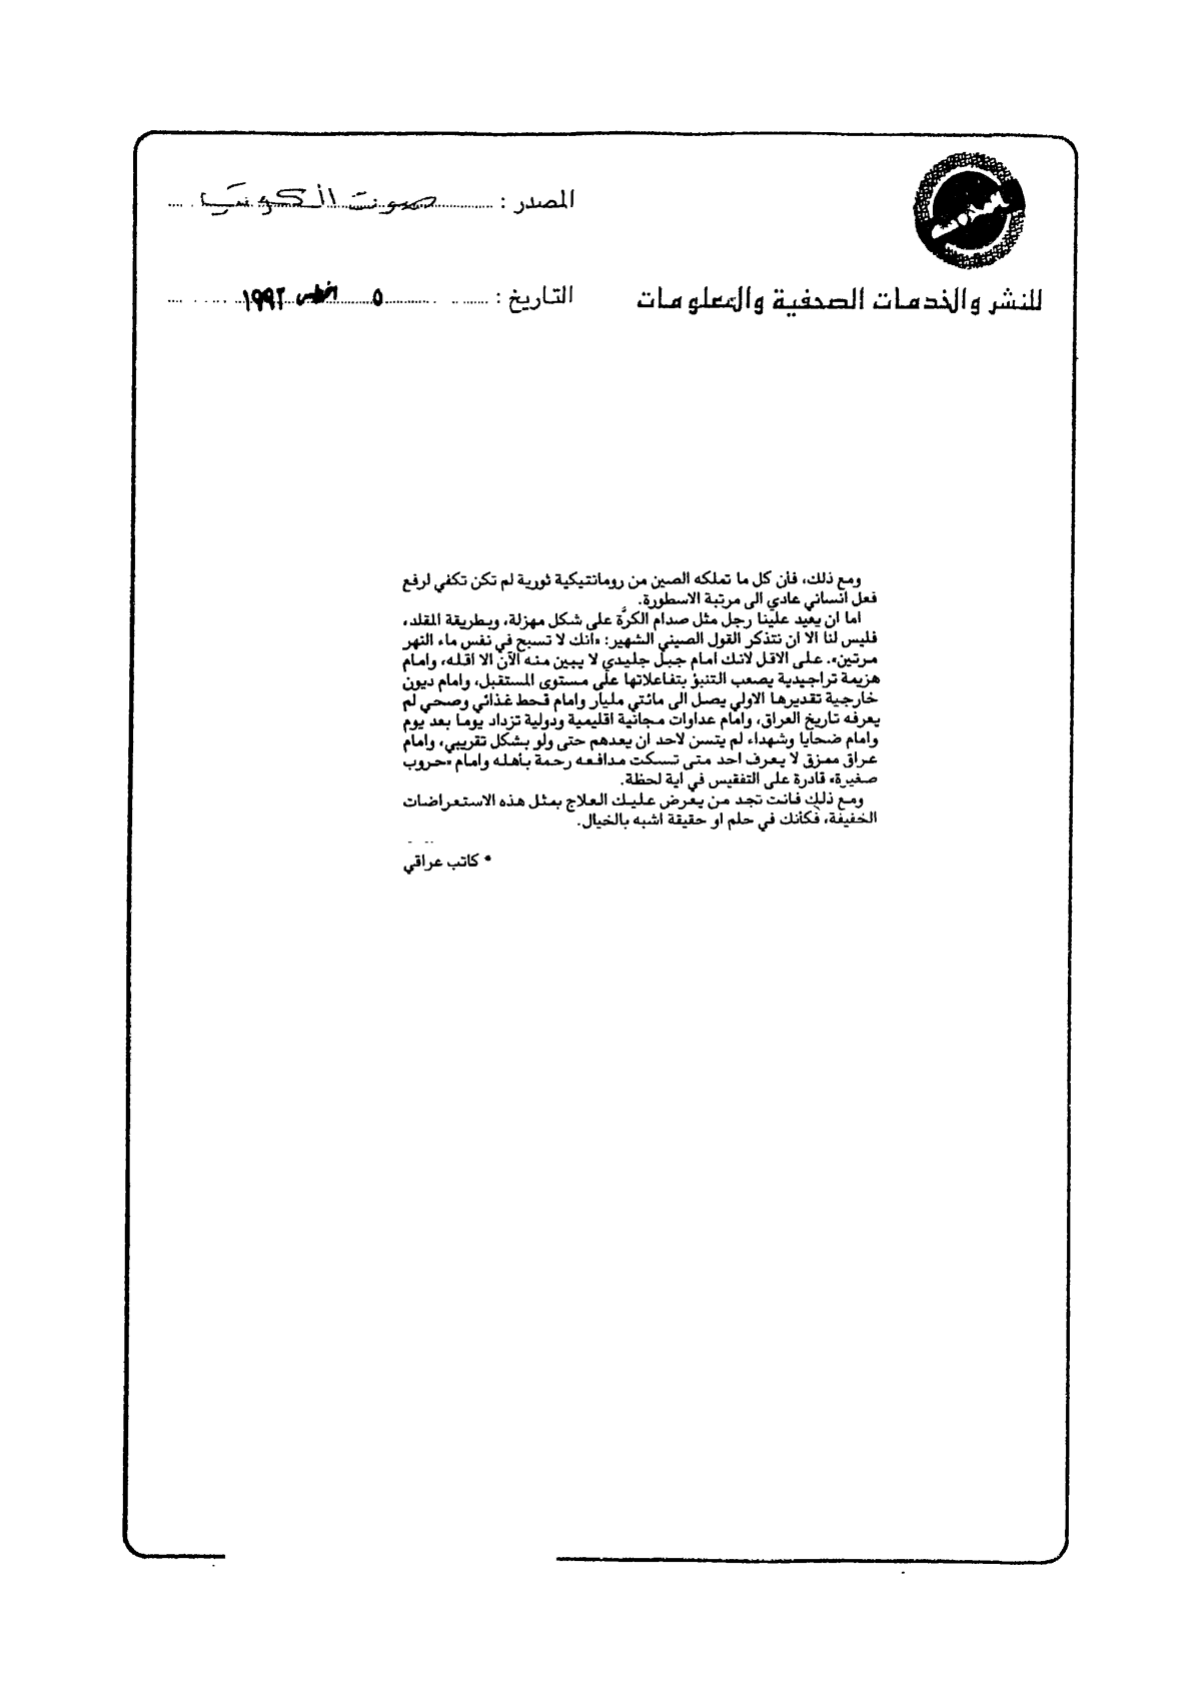 المصدر : صوت الكويت
للنشر والخدمات الصحفية والمعلومات
التاريخ : ٥ اغسطس ١٩٩٢
ومع ذلك، فان كل ما تملكه الصين من رومانتيكية ثورية لم تكن تكفي لرفع
فعل انساني عادي الى مرتبة الاسطورة.
اما ان يعيد علينا رجل مثل صدام الكرَّة على شكل مهزلة، وبطريقة المقلد،
فليس لنا الا ان نتذكر القول الصيني الشهير: «انك لا تسبح في نفس ماء النهر
مرتين». على الاقل لانك امام جبل جليدي لا يبين منه الآن الا اقله، وامام
هزيمة تراجيدية يصعب التنبؤ بتفاعلاتها على مستوى المستقبل، وامام ديون
خارجية تقديرها الاولي يصل الى مائتي مليار وامام قحط غذائي وصحي لم
يعرفه تاريخ العراق، وامام عداوات مجانية اقليمية ودولية تزداد يوما بعد يوم
وامام ضحايا وشهداء لم يتسن لاحد ان يعدهم حتى ولو بشكل تقريبي، وامام
عراق ممزق لا يعرف احد متى تسكت مدافعه رحمة بأهله وامام «حروب
صغيرة» قادرة على التفقيس في اية لحظة.
ومع ذلك فانت تجد من يعرض عليك العلاج بمثل هذه الاستعراضات
الخفيفة، فكأنك في حلم او حقيقة اشبه بالخيال.
• كاتب عراقي